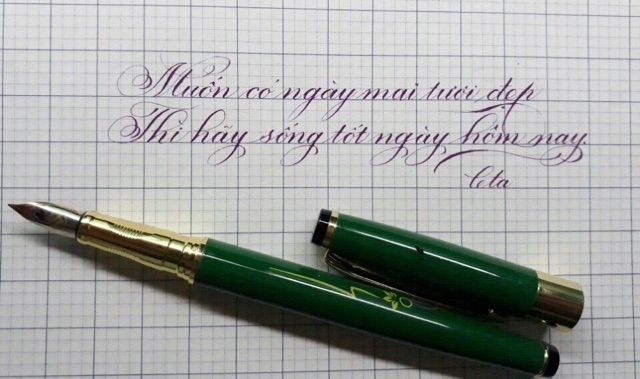 Muốn có ngày mai tươi đẹp
Thì hãy sống tốt ngày hôm nay.